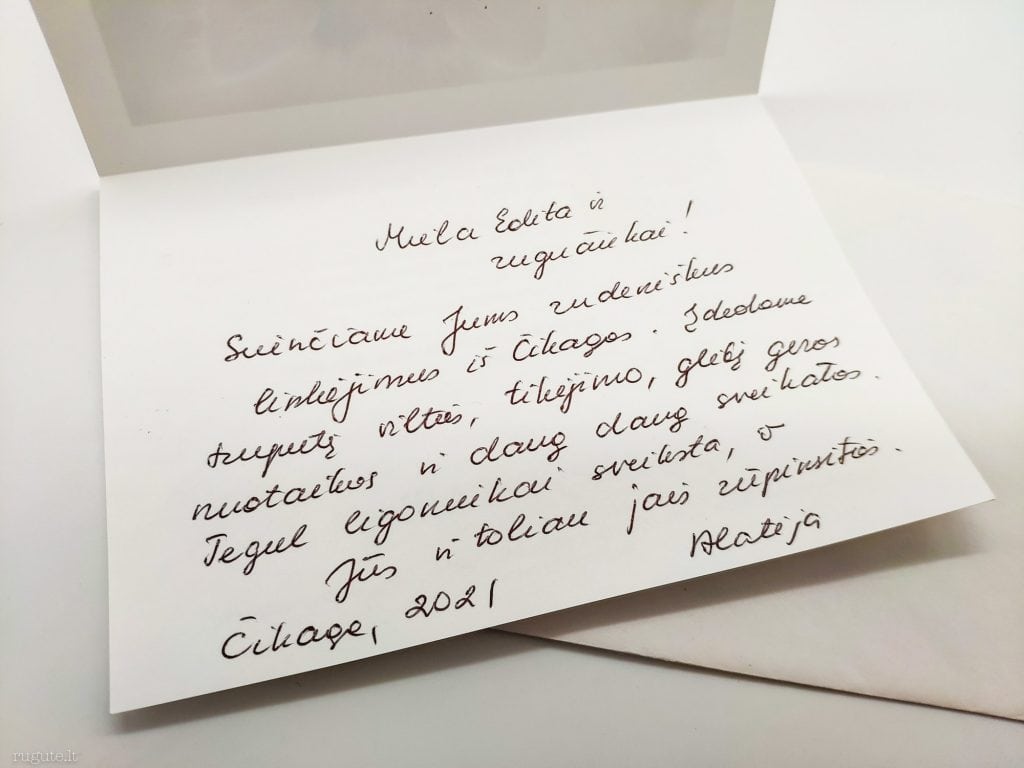 Miela Edita ir
rugučiukai!
Siunčiame Jums rudeniškus
linkėjimus iš Čikagos. Įdedame
truputį vilties, tikėjimo, glėbį geros
nuotaikos ir daug daug sveikatos.
Tegul ligoniukai sveiksta, o
Jūs ir toliau jais rūpinsitės.
Alatėja
Čikaga, 2021
rugute.lt